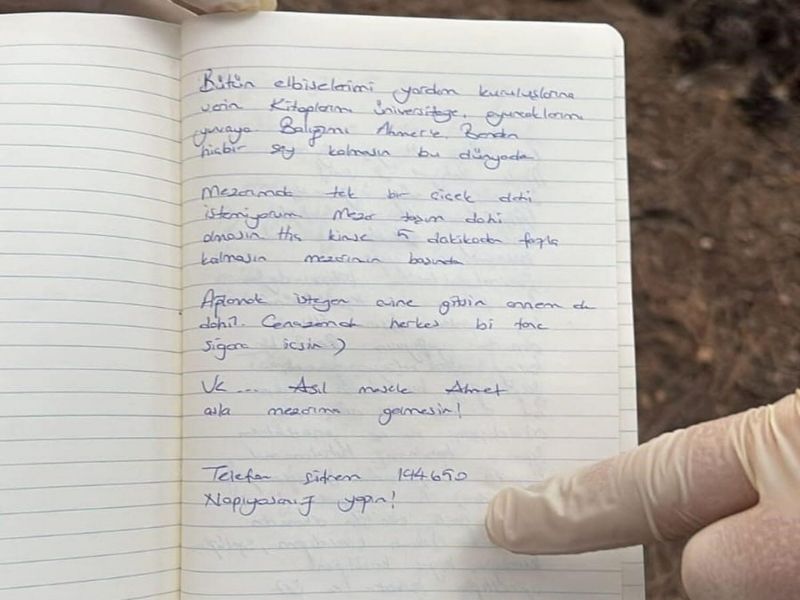 Bütün elbiselerimi yardım kuruluşlarına
verin Kitaplarımı üniversiteye, oyuncaklarımı
yuvaya Balığımı Ahmet'e, Benden
hiçbir şey kalmasın bu dünyada
Mezarımda tek bir çiçek dahi
istemiyorum Mezar taşım dahi
olmasın Hiç kimse 5 dakikadan fazla
kalmasın mezarımın başında
Ağlamak isteyen evine gitsin annem de
dahil. Cenazemde herkes bi tane
sigara içsin :)
Ve... Asıl mesele Ahmet
asla mezarıma gelmesin!
Telefon şifrem 194650
Napıyosanız yapın!